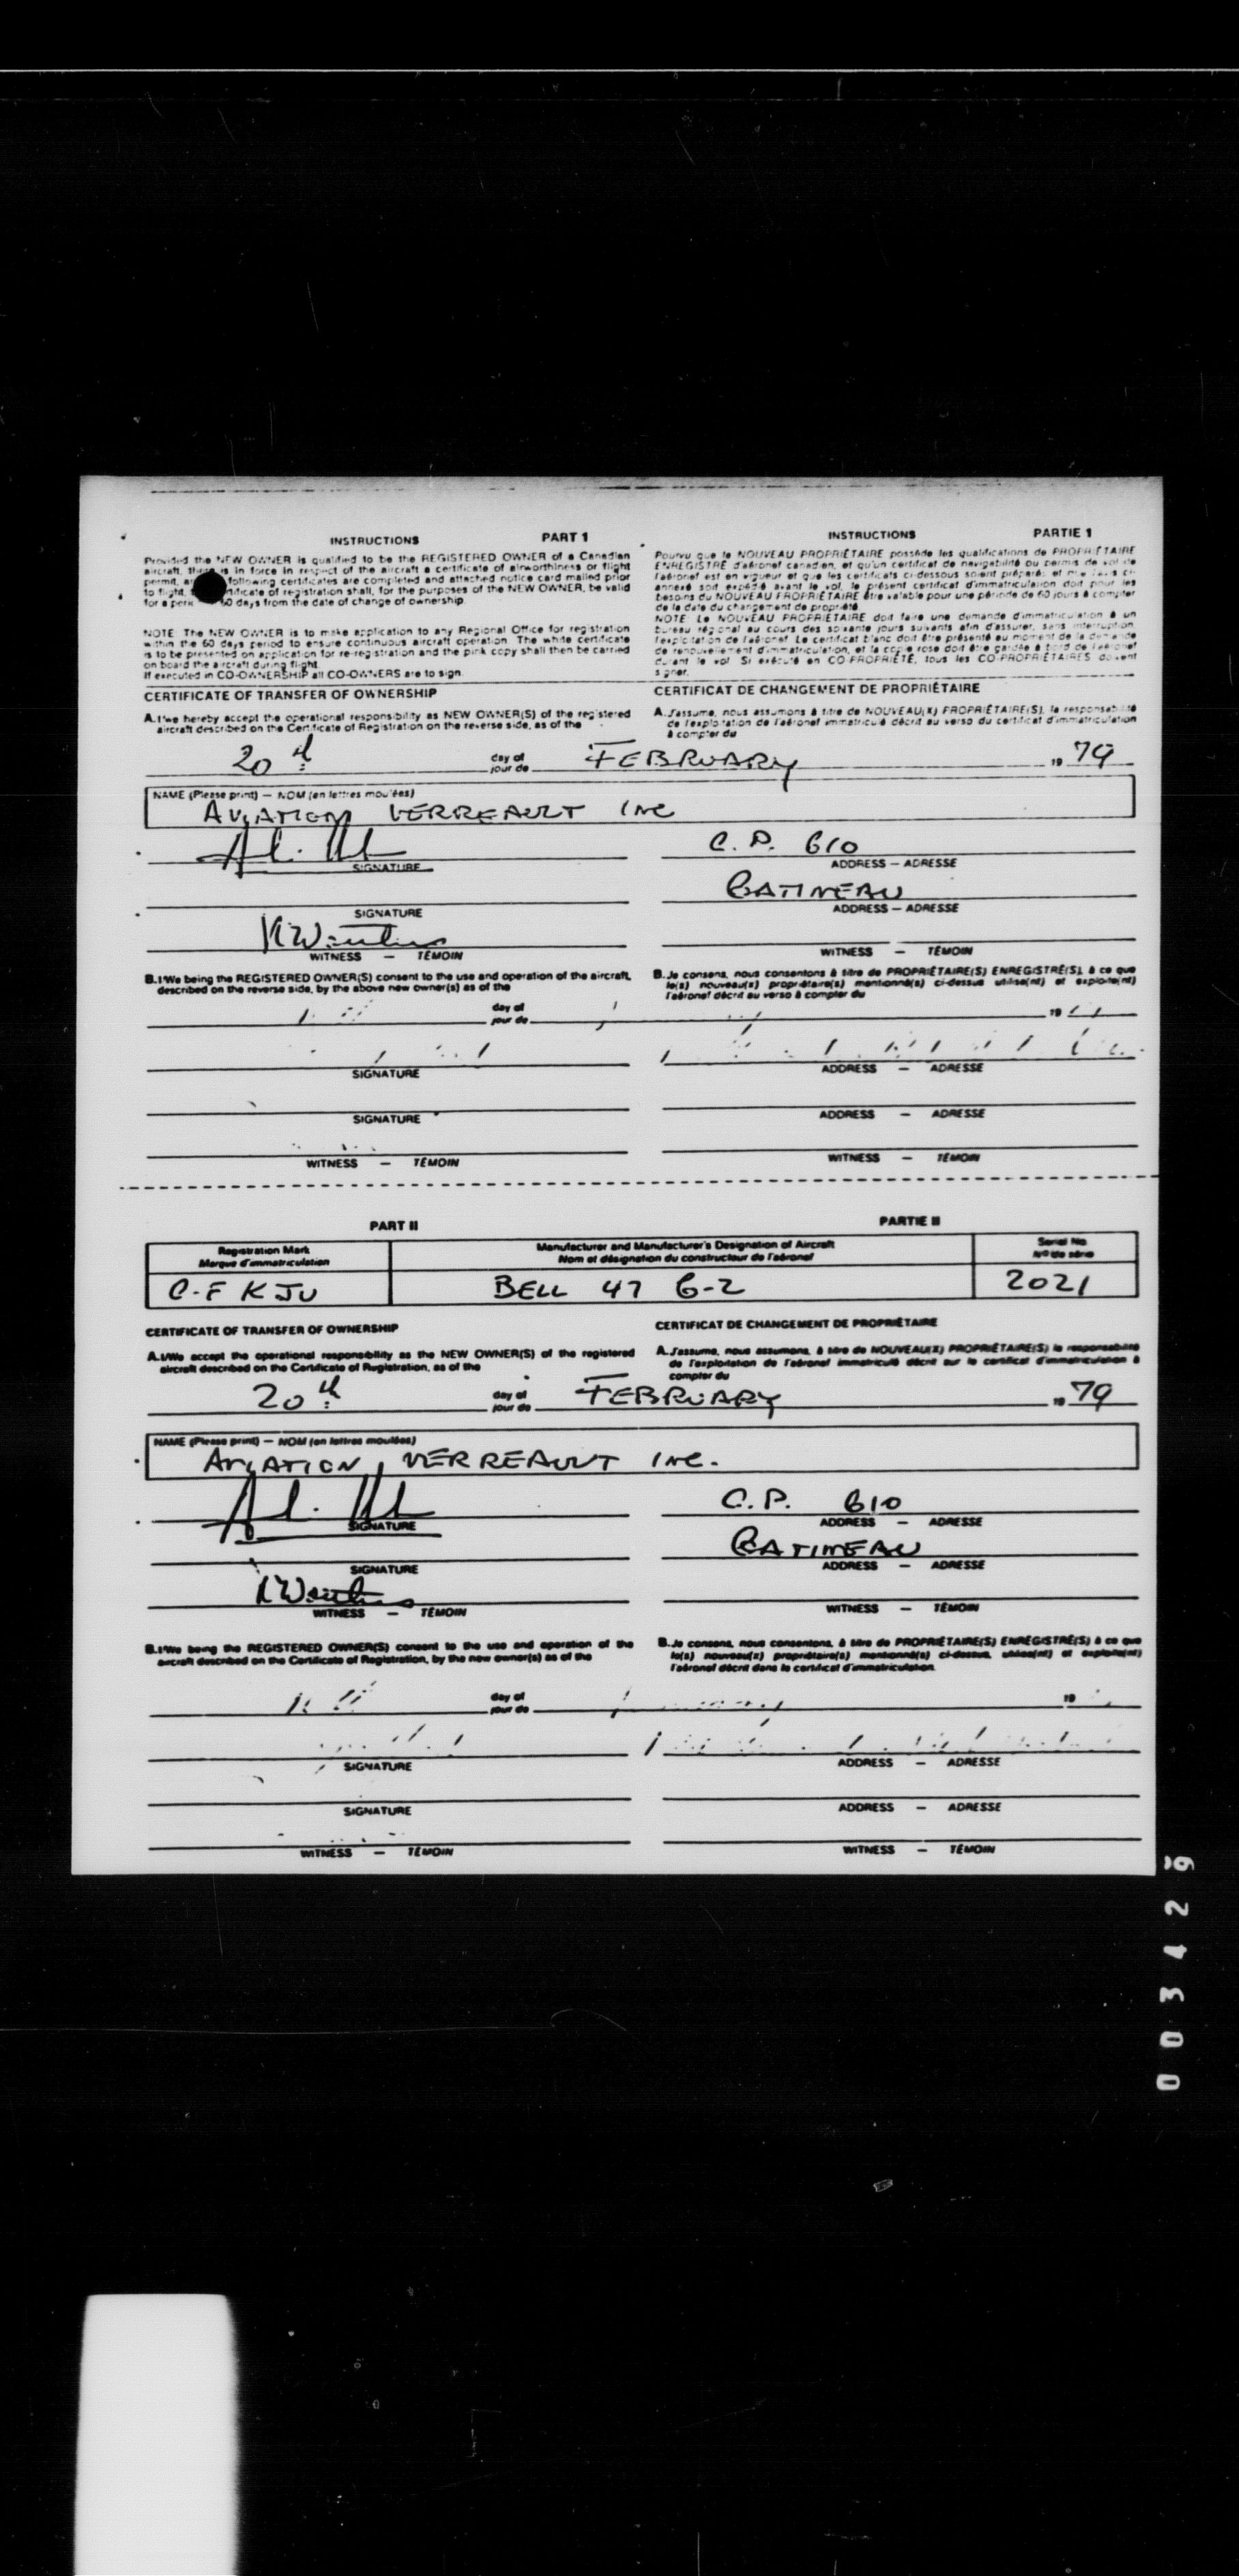 INSTRUCTIONS PART 1
Provided the NEW OWNER is qualified to be the REGISTERED OWNER of a Canadian
aircraft, there is in force in respect of the aircraft a certificate of airworthiness or flight
permit, and following certificates are completed and attached notice card mailed prior
to flight, certificate of registration shall, for the purposes of the NEW OWNER, be valid
for a 60 days from the date of change of ownership.
NOTE: The NEW OWNER is to make application to any Regional Office for registration
within the 60 days period to ensure continuous aircraft operation. The white certificate
is to be presented on application for re-registration and the pink copy shall then be carried
on board the aircraft during flight.
If executed in CO-OWNERSHIP all CO-OWNERS are to sign.
INSTRUCTIONS PARTIE 1
Pourvu que le NOUVEAU PROPRIÉTAIRE possède les qualifications de PROPRIÉTAIRE
ENREGISTRÉ d'aéronef canadien, et qu'un certificat de navigabilité ou permis de vol de
l'aéronef est en vigueur et que les certificats ci-dessous soient préparés et
annexé soit expédié avant le vol, le présent certificat d'immatriculation doit pour les
besoins du NOUVEAU PROPRIÉTAIRE être valable pour une période de 60 jours à compter
de la date du changement de propriété
NOTE Le NOUVEAU PROPRIÉTAIRE doit faire une demande d'immatriculation à un
bureau régional au cours des soixante jours suivants afin d'assurer, sans interruption,
l'exploitation de l'aéronef. Le certificat blanc doit être présenté au moment de la demande
de renouvellement d'immatriculation, et la copie rose doit être gardée à bord de l'aéronef
durant le vol. Si exécuté en CO-PROPRIÉTÉ, tous les CO-PROPRIÉTAIRES doivent
signer.
CERTIFICATE OF TRANSFER OF OWNERSHIP
A. I/we hereby accept the operational responsibility as NEW OWNER(S) of the registered
aircraft described on the Certificate of Registration on the reverse side, as of the
CERTIFICAT DE CHANGEMENT DE PROPRIÉTAIRE
A. J'assume, nous assumons à titre de NOUVEAU(X) PROPRIÉTAIRE(S), la responsabilité
de l'exploitation de l'aéronef immatriculé décrit au verso du certificat d'immatriculation
à compter du
20th day of FEBRUARY 19 79
jour de
NAME (Please print) — NOM (en lettres moulées)
AVIATION VERREAULT INC
C.P. 610
SIGNATURE ADDRESS — ADRESSE
GATINEAU
SIGNATURE ADDRESS — ADRESSE
WITNESS — TÉMOIN WITNESS — TÉMOIN
B. I/We being the REGISTERED OWNER(S) consent to the use and operation of the aircraft,
described on the reverse side, by the above new owner(s) as of the
B. Je consens, nous consentons à titre de PROPRIÉTAIRE(S) ENREGISTRÉ(S), à ce que
le(s) nouveau(x) propriétaire(s) mentionné(s) ci-dessus utilise(nt) et exploite(nt)
l'aéronef décrit au verso à compter du
day of 19
jour de
SIGNATURE ADDRESS — ADRESSE
SIGNATURE ADDRESS — ADRESSE
WITNESS — TÉMOIN WITNESS — TÉMOIN
PART II PARTIE II
Registration Mark Manufacturer and Manufacturer's Designation of Aircraft Serial No.
Marque d'immatriculation Nom et désignation du constructeur de l'aéronef Nº de série
C-F KJU BELL 47 G-2 2021
CERTIFICATE OF TRANSFER OF OWNERSHIP
A. I/We accept the operational responsibility as the NEW OWNER(S) of the registered
aircraft described on the Certificate of Registration, as of the
CERTIFICAT DE CHANGEMENT DE PROPRIÉTAIRE
A. J'assume, nous assumons, à titre de NOUVEAU(X) PROPRIÉTAIRE(S) la responsabilité
de l'exploitation de l'aéronef immatriculé décrit sur le certificat d'immatriculation à
compter du
20th day of FEBRUARY 19 79
jour de
NAME (Please print) — NOM (en lettres moulées)
AVIATION VERREAULT INC.
C.P. 610
SIGNATURE ADDRESS — ADRESSE
GATINEAU
SIGNATURE ADDRESS — ADRESSE
WITNESS — TÉMOIN WITNESS — TÉMOIN
B. I/We being the REGISTERED OWNER(S) consent to the use and operation of the
aircraft described on the Certificate of Registration, by the new owner(s) as of the
B. Je consens, nous consentons, à titre de PROPRIÉTAIRE(S) ENREGISTRÉ(S) à ce que
le(s) nouveau(x) propriétaire(s) mentionné(s) ci-dessus, utilise(nt) et exploite(nt)
l'aéronef décrit dans le certificat d'immatriculation.
day of 19
jour de
SIGNATURE ADDRESS — ADRESSE
SIGNATURE ADDRESS — ADRESSE
WITNESS — TÉMOIN WITNESS — TÉMOIN
003429